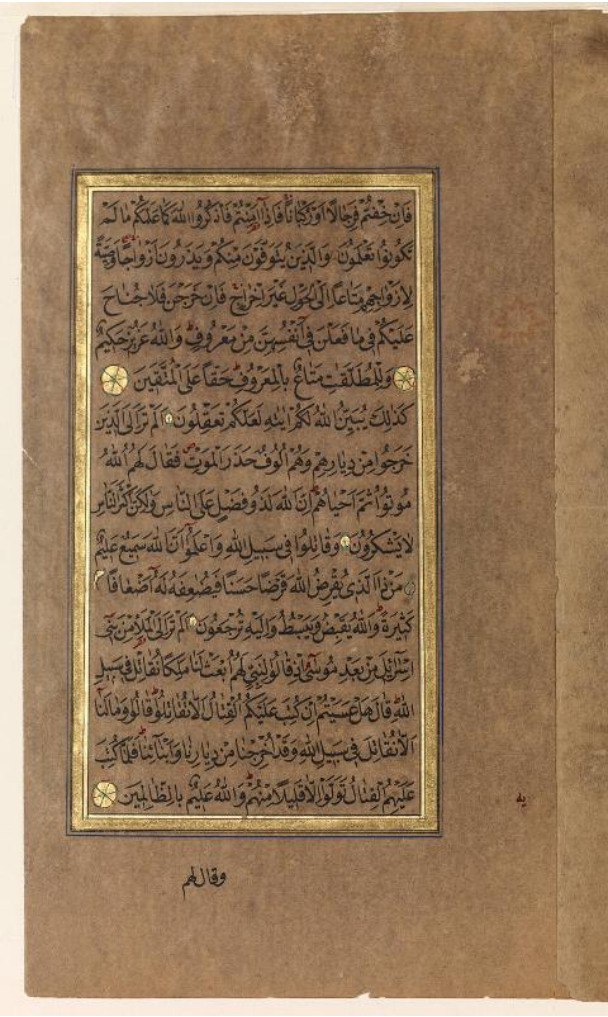 فَإِنْ خِفْتُمْ فَرِجَالًا أَوْ رُكْبَانًا فَإِذَا أَمِنْتُمْ فَاذْكُرُوا اللهَ كَمَا عَلَّمَكُمْ مَا لَمْ
تَكُونُوا تَعْلَمُونَ وَالَّذِينَ يُتَوَفَّوْنَ مِنْكُمْ وَيَذَرُونَ أَزْوَاجًا وَصِيَّةً
لِأَزْوَاجِهِمْ مَتَاعًا إِلَى الْحَوْلِ غَيْرَ إِخْرَاجٍ فَإِنْ خَرَجْنَ فَلَا جُنَاحَ
عَلَيْكُمْ فِي مَا فَعَلْنَ فِي أَنْفُسِهِنَّ مِنْ مَعْرُوفٍ وَاللهُ عَزِيزٌ حَكِيمٌ
وَلِلْمُطَلَّقٰتِ مَتَاعٌ بِالْمَعْرُوفِ حَقًّا عَلَى الْمُتَّقِينَ
كَذٰلِكَ يُبَيِّنُ اللهُ لَكُمْ اٰيٰتِهِ لَعَلَّكُمْ تَعْقِلُونَ أَلَمْ تَرَ إِلَى الَّذِينَ
خَرَجُوا مِنْ دِيَارِهِمْ وَهُمْ أُلُوفٌ حَذَرَ الْمَوْتِ فَقَالَ لَهُمُ اللهُ
مُوتُوا ثُمَّ أَحْيَاهُمْ إِنَّ اللهَ لَذُو فَضْلٍ عَلَى النَّاسِ وَلٰكِنَّ أَكْثَرَ النَّاسِ
لَا يَشْكُرُونَ وَقَاتِلُوا فِي سَبِيلِ اللهِ وَاعْلَمُوا أَنَّ اللهَ سَمِيعٌ عَلِيمٌ
مَنْ ذَا الَّذِي يُقْرِضُ اللهَ قَرْضًا حَسَنًا فَيُضٰعِفَهُ لَهُ أَضْعَافًا
كَثِيرَةً وَاللهُ يَقْبِضُ وَيَبْسُطُ وَإِلَيْهِ تُرْجَعُونَ أَلَمْ تَرَ إِلَى الْمَلَإِ مِنْ بَنِي
اسْرَائِلَ مِنْ بَعْدِ مُوسٰى إِذْ قَالُوا لِنَبِيٍّ لَهُمُ ابْعَثْ لَنَا مَلِكًا نُقَاتِلْ فِي سَبِيلِ
اللهِ قَالَ هَلْ عَسَيْتُمْ إِنْ كُتِبَ عَلَيْكُمُ الْقِتَالُ أَلَّا تُقَاتِلُوا قَالُوا وَمَا لَنَا
أَلَّا نُقَاتِلَ فِي سَبِيلِ اللهِ وَقَدْ أُخْرِجْنَا مِنْ دِيَارِنَا وَأَبْنَائِنَا فَلَمَّا كُتِبَ
عَلَيْهِمُ الْقِتَالُ تَوَلَّوْا إِلَّا قَلِيلًا مِنْهُمْ وَاللهُ عَلِيمٌ بِالظَّالِمِينَ
وقال لهم